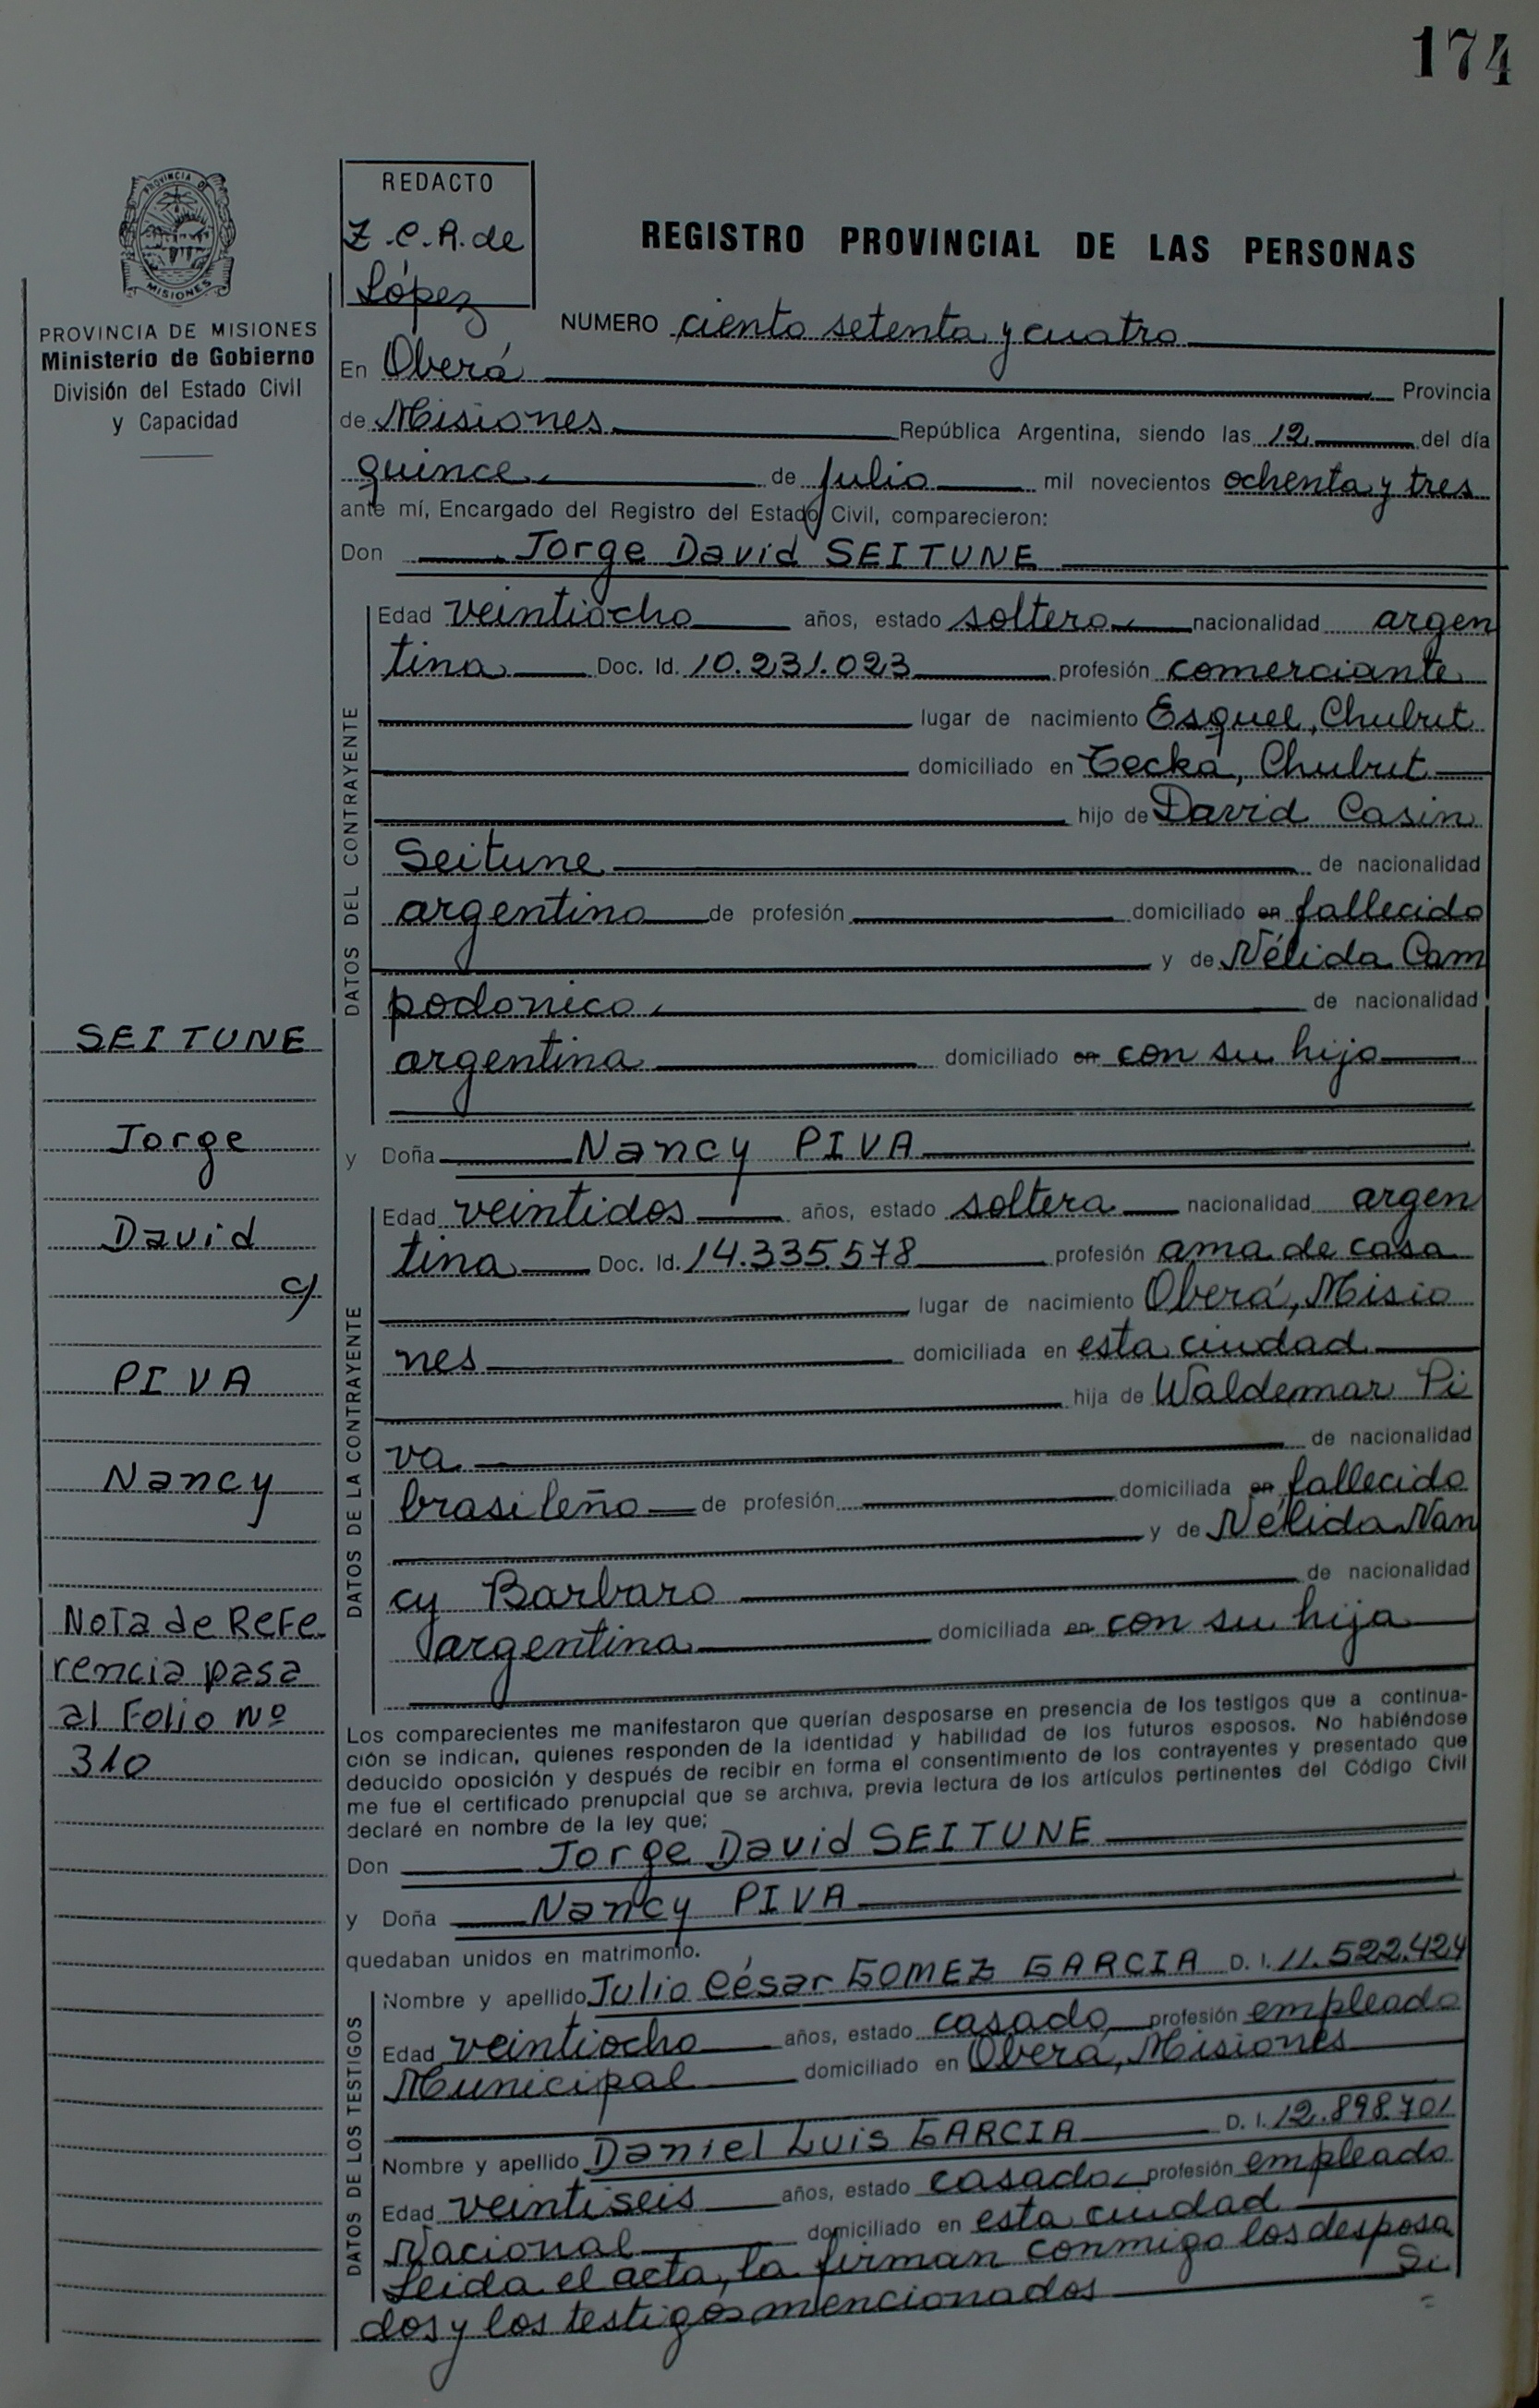 174
PROVINCIA DE
MISIONES
PROVINCIA DE MISIONES
Ministerio de Gobierno
División del Estado Civil
y Capacidad
REDACTO
Z.C.R. de
López
REGISTRO PROVINCIAL DE LAS PERSONAS
NUMERO ciento setenta y cuatro
En Oberá Provincia
de Misiones República Argentina, siendo las 12 del día
quince de julio mil novecientos ochenta y tres
ante mí, Encargado del Registro del Estado Civil, comparecieron:
Don Jorge David SEITUNE
DATOS DEL CONTRAYENTE
Edad veintiocho años, estado soltero nacionalidad argen
tina Doc. Id. 10.231.023 profesión comerciante
lugar de nacimiento Esquel, Chubut
domiciliado en Tecka, Chubut
hijo de David Casin
Seitune de nacionalidad
argentino de profesión domiciliado en fallecido
y de Nélida Cam
podonico de nacionalidad
argentina domiciliado en con su hijo
y Doña Nancy PIVA
DATOS DE LA CONTRAYENTE
Edad veintidos años, estado soltera nacionalidad argen
tina Doc. Id. 14.335.578 profesión ama de casa
lugar de nacimiento Oberá, Misio
nes domiciliada en esta ciudad
hija de Waldemar Pi
va de nacionalidad
brasileño de profesión domiciliada en fallecido
y de Nélida Nan
cy Barbaro de nacionalidad
argentina domiciliada en con su hija
Los comparecientes me manifestaron que querían desposarse en presencia de los testigos que a continua-
ción se indican, quienes responden de la identidad y habilidad de los futuros esposos. No habiéndose
deducido oposición y después de recibir en forma el consentimiento de los contrayentes y presentado que
me fue el certificado prenupcial que se archiva, previa lectura de los artículos pertinentes del Código Civil
declaré en nombre de la ley que;
Don Jorge David SEITUNE
y Doña Nancy PIVA
quedaban unidos en matrimonio.
DATOS DE LOS TESTIGOS
Nombre y apellido Julio César GOMEZ GARCIA D. I. 11.522.424
Edad veintiocho años, estado casado profesión empleado
Municipal domiciliado en Oberá, Misiones
Nombre y apellido Daniel Luis GARCIA D. I. 12.898.701
Edad veintiseis años, estado casado profesión empleado
Nacional domiciliado en esta ciudad
Leida el acta, la firman conmigo los desposa
dos y los testigos mencionados
SEITUNE
Jorge
David
c/
PIVA
Nancy
Nota de Refe
rencia pasa
al Folio Nº
310